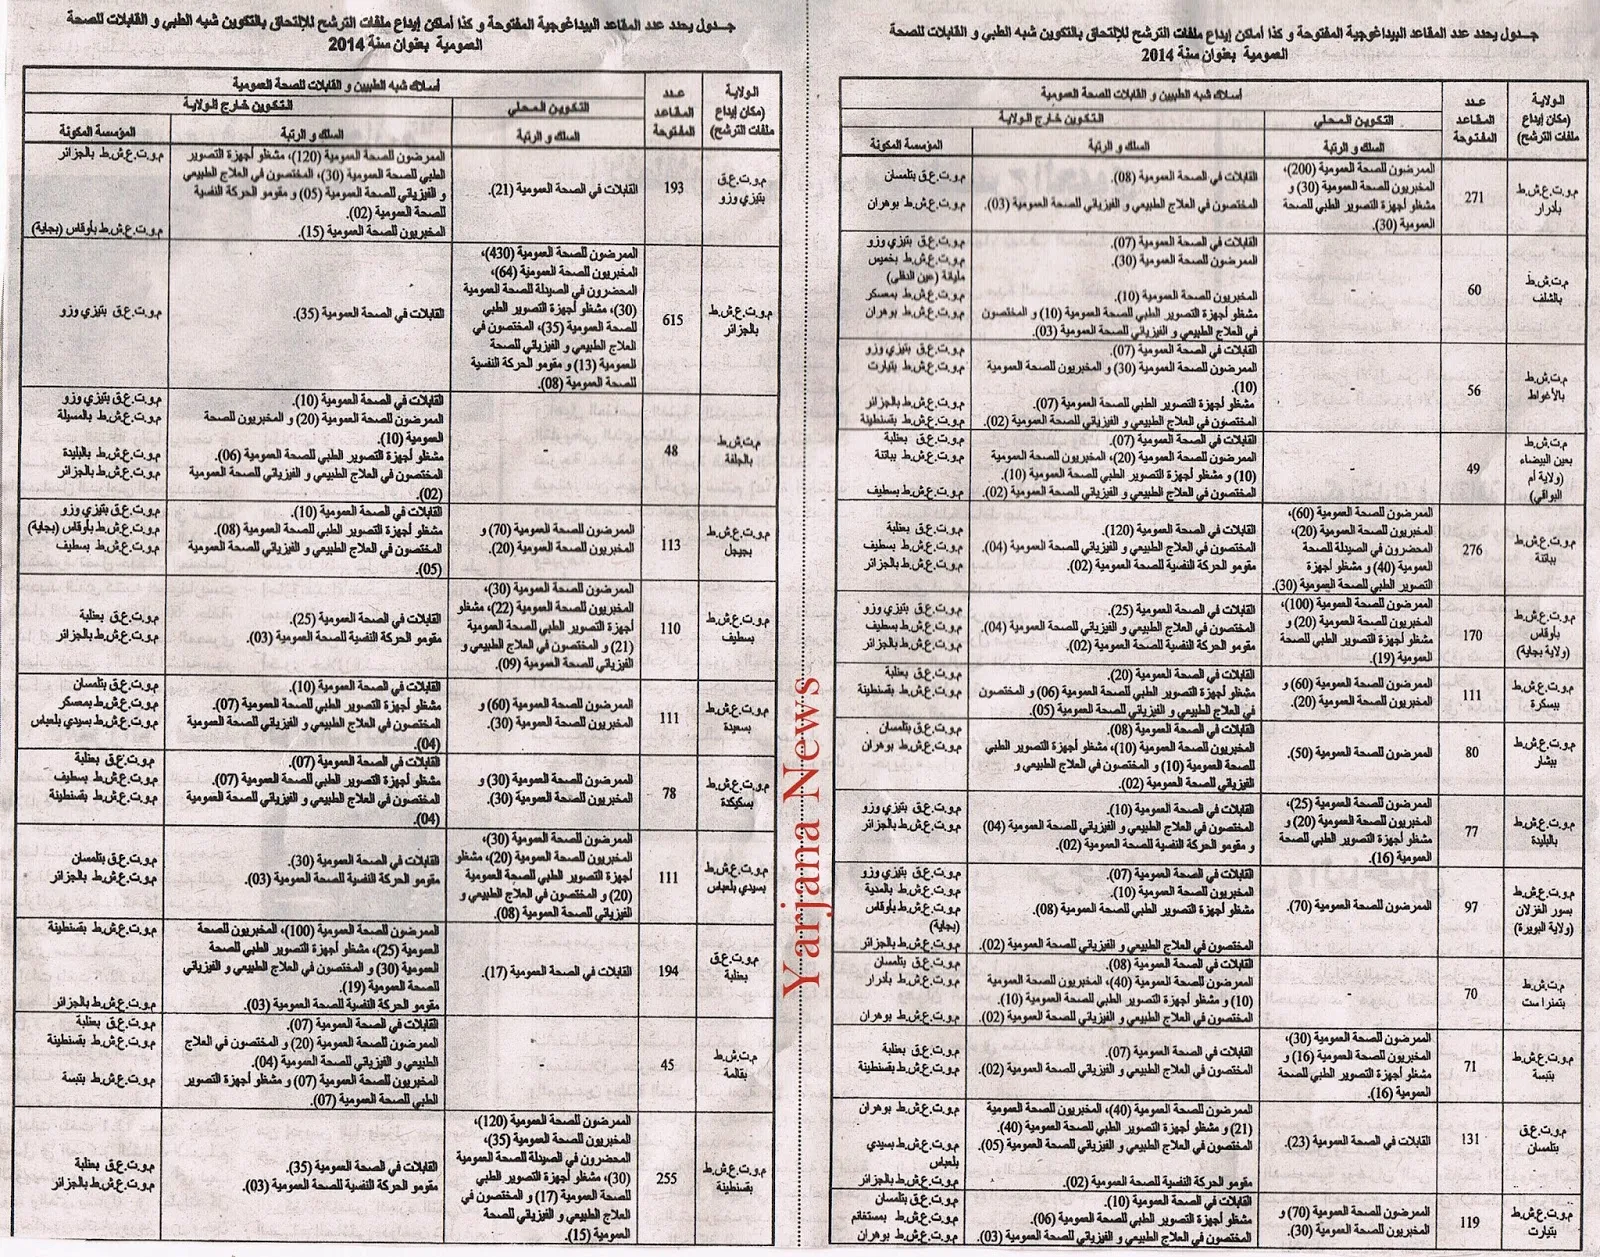 جـدول يحدد عدد المقاعد البيداغوجية المفتوحة و كذا أماكن إيداع ملفات الترشح للإلتحاق بالتكوين شبه الطبي و القابلات للصحة
العمومية بعنوان سنة 2014
الولاية (مكان إيداع ملفات الترشح)
عـدد المقاعد المفتوحة
أسلاك شبه الطبيين و القابلات للصحة العمومية
التكوين المحلي
التكوين خارج الولاية
السلك و الرتبة
السلك و الرتبة
المؤسسة المكونة
م.و.ت.ع.ش.ط بأدرار
271
الممرضون للصحة العمومية (200)،
المخبريون للصحة العمومية (30) و
مشغلو أجهزة التصوير الطبي للصحة
العمومية (30).
القابلات في الصحة العمومية (08).
م.و.ت.ع.ق بتلمسان
المختصون في العلاج الطبيعي و الفيزيائي للصحة العمومية (03).
م.و.ت.ع.ش.ط بوهران
م.ت.ش.ط بالشلف
60
-
القابلات في الصحة العمومية (07).
م.و.ت.ع.ق بتيزي وزو
الممرضون للصحة العمومية (30).
م.و.ت.ع.ش.ط بخميس
مليانة (عين الدفلى)
المخبريون للصحة العمومية (10).
م.و.ت.ع.ش.ط بمعسكر
مشغلو أجهزة التصوير الطبي للصحة العمومية (10) و المختصون
م.و.ت.ع.ش.ط بوهران
في العلاج الطبيعي و الفيزيائي للصحة العمومية (03).
م.ت.ش.ط بالأغواط
56
-
القابلات في الصحة العمومية (07).
م.و.ت.ع.ق بتيزي وزو
الممرضون للصحة العمومية (30) و المخبريون للصحة العمومية
م.و.ت.ع.ش.ط بتيارت
(10).
مشغلو أجهزة التصوير الطبي للصحة العمومية (07).
م.و.ت.ع.ش.ط بالجزائر
المختصون في العلاج الطبيعي و الفيزيائي للصحة العمومية (02).
م.و.ت.ع.ش.ط بقسنطينة
م.ت.ش.ط بعين البيضاء (ولاية أم البواقي)
49
-
القابلات في الصحة العمومية (07).
م.و.ت.ع.ق بعنابة
الممرضون للصحة العمومية (20)، المخبريون للصحة العمومية
م.و.ت.ع.ش.ط بباتنة
(10) و مشغلو أجهزة التصوير الطبي للصحة العمومية (10).
المختصون في العلاج الطبيعي و الفيزيائي للصحة العمومية (02).
م.و.ت.ع.ش.ط بسطيف
م.و.ت.ع.ش.ط بباتنة
276
الممرضون للصحة العمومية (60)،
المخبريون للصحة العمومية (20)،
المحضرون في الصيدلة للصحة
العمومية (40) و مشغلو أجهزة
التصوير الطبي للصحة العمومية (30).
القابلات في الصحة العمومية (120).
م.و.ت.ع.ق بعنابة
المختصون في العلاج الطبيعي و الفيزيائي للصحة العمومية (04).
م.و.ت.ع.ش.ط بسطيف
مقومو الحركة النفسية للصحة العمومية (02).
م.و.ت.ع.ش.ط بالجزائر
م.و.ت.ع.ش.ط بأوقاس (ولاية بجاية)
170
الممرضون للصحة العمومية (100)،
المخبريون للصحة العمومية (20) و
مشغلو أجهزة التصوير الطبي للصحة
العمومية (19).
القابلات في الصحة العمومية (25).
م.و.ت.ع.ق بتيزي وزو
المختصون في العلاج الطبيعي و الفيزيائي للصحة العمومية (04).
م.و.ت.ع.ش.ط بسطيف
مقومو الحركة النفسية للصحة العمومية (02).
م.و.ت.ع.ش.ط بالجزائر
م.و.ت.ع.ش.ط ببسكرة
111
الممرضون للصحة العمومية (60) و
المخبريون للصحة العمومية (20).
القابلات في الصحة العمومية (20).
م.و.ت.ع.ق بعنابة
مشغلو أجهزة التصوير الطبي للصحة العمومية (06) و المختصون
م.و.ت.ع.ش.ط بقسنطينة
في العلاج الطبيعي و الفيزيائي للصحة العمومية (05).
م.و.ت.ع.ش.ط ببشار
80
الممرضون للصحة العمومية (50).
القابلات في الصحة العمومية (08).
م.و.ت.ع.ق بتلمسان
المخبريون للصحة العمومية (10)، مشغلو أجهزة التصوير الطبي
م.و.ت.ع.ش.ط بوهران
للصحة العمومية (10) و المختصون في العلاج الطبيعي و
الفيزيائي للصحة العمومية (02).
م.و.ت.ع.ش.ط بالبليدة
77
الممرضون للصحة العمومية (25)،
المخبريون للصحة العمومية (20) و
مشغلو أجهزة التصوير الطبي للصحة
العمومية (16).
القابلات في الصحة العمومية (10).
م.و.ت.ع.ق بتيزي وزو
المختصون في العلاج الطبيعي و الفيزيائي للصحة العمومية (04)
م.و.ت.ع.ش.ط بالجزائر
و مقومو الحركة النفسية للصحة العمومية (02).
م.و.ت.ع.ش.ط بسور الغزلان (ولاية البويرة)
97
الممرضون للصحة العمومية (70).
القابلات في الصحة العمومية (07).
م.و.ت.ع.ق بتيزي وزو
المخبريون للصحة العمومية (10).
م.و.ت.ع.ش.ط بالمدية
مشغلو أجهزة التصوير الطبي للصحة العمومية (08).
م.و.ت.ع.ش.ط بأوقاس
(بجاية)
المختصون في العلاج الطبيعي و الفيزيائي للصحة العمومية (02).
م.و.ت.ع.ش.ط بالجزائر
م.ت.ش.ط بتمنراست
70
-
القابلات في الصحة العمومية (08).
م.و.ت.ع.ق بتلمسان
الممرضون للصحة العمومية (40)، المخبريون للصحة العمومية
م.و.ت.ع.ش.ط بأدرار
(10) و مشغلو أجهزة التصوير الطبي للصحة العمومية (10).
المختصون في العلاج الطبيعي و الفيزيائي للصحة العمومية (02).
م.و.ت.ع.ش.ط بوهران
م.و.ت.ع.ش.ط بتبسة
71
الممرضون للصحة العمومية (30)،
المخبريون للصحة العمومية (16) و
مشغلو أجهزة التصوير الطبي للصحة
العمومية (16).
القابلات في الصحة العمومية (07).
م.و.ت.ع.ق بعنابة
المختصون في العلاج الطبيعي و الفيزيائي للصحة العمومية (02).
م.و.ت.ع.ش.ط بقسنطينة
م.و.ت.ع.ق بتلمسان
131
القابلات في الصحة العمومية (23).
الممرضون للصحة العمومية (40)، المخبريون للصحة العمومية
م.و.ت.ع.ش.ط بوهران
(21) و مشغلو أجهزة التصوير الطبي للصحة العمومية (40).
المختصون في العلاج الطبيعي و الفيزيائي للصحة العمومية (05).
م.و.ت.ع.ش.ط بسيدي
بلعباس
مقومو الحركة النفسية للصحة العمومية (02).
م.و.ت.ع.ش.ط بالجزائر
م.و.ت.ع.ش.ط بتيارت
119
الممرضون للصحة العمومية (70) و
المخبريون للصحة العمومية (30).
القابلات في الصحة العمومية (10).
م.و.ت.ع.ق بتلمسان
مشغلو أجهزة التصوير الطبي للصحة العمومية (06).
م.و.ت.ع.ش.ط بمستغانم
المختصون في العلاج الطبيعي و الفيزيائي للصحة العمومية (03).
م.و.ت.ع.ش.ط بوهران
Yarjana News
جـدول يحدد عدد المقاعد البيداغوجية المفتوحة و كذا أماكن إيداع ملفات الترشح للإلتحاق بالتكوين شبه الطبي و القابلات للصحة
العمومية بعنوان سنة 2014
الولاية (مكان إيداع ملفات الترشح)
عـدد المقاعد المفتوحة
أسلاك شبه الطبيين و القابلات للصحة العمومية
التكوين المحلي
التكوين خارج الولاية
السلك و الرتبة
السلك و الرتبة
المؤسسة المكونة
م.و.ت.ع.ق بتيزي وزو
193
القابلات في الصحة العمومية (21).
الممرضون للصحة العمومية (120)، مشغلو أجهزة التصوير
م.و.ت.ع.ش.ط بالجزائر
الطبي للصحة العمومية (30)، المختصون في العلاج الطبيعي
و الفيزيائي للصحة العمومية (05) و مقومو الحركة النفسية
للصحة العمومية (02).
المخبريون للصحة العمومية (15).
م.و.ت.ع.ش.ط بأوقاس (بجاية)
م.و.ت.ع.ش.ط بالجزائر
615
الممرضون للصحة العمومية (430)،
المخبريون للصحة العمومية (64)،
المحضرون في الصيدلة للصحة العمومية
(30)، مشغلو أجهزة التصوير الطبي
للصحة العمومية (35)، المختصون في
العلاج الطبيعي و الفيزيائي للصحة
العمومية (13) و مقومو الحركة النفسية
للصحة العمومية (08).
القابلات في الصحة العمومية (35).
م.و.ت.ع.ق بتيزي وزو
م.ت.ش.ط بالجلفة
48
-
القابلات في الصحة العمومية (10).
م.و.ت.ع.ق بتيزي وزو
الممرضون للصحة العمومية (20) و المخبريون للصحة
م.و.ت.ع.ش.ط بالمسيلة
العمومية (10).
مشغلو أجهزة التصوير الطبي للصحة العمومية (06).
م.و.ت.ع.ش.ط بالبليدة
المختصون في العلاج الطبيعي و الفيزيائي للصحة العمومية
م.و.ت.ع.ش.ط بالجزائر
(02).
م.و.ت.ع.ش.ط بجيجل
113
الممرضون للصحة العمومية (70) و
المخبريون للصحة العمومية (20).
القابلات في الصحة العمومية (10).
م.و.ت.ع.ق بتيزي وزو
مشغلو أجهزة التصوير الطبي للصحة العمومية (08).
م.و.ت.ع.ش.ط بأوقاس (بجاية)
المختصون في العلاج الطبيعي و الفيزيائي للصحة العمومية
م.و.ت.ع.ش.ط بسطيف
(05).
م.و.ت.ع.ش.ط بسطيف
110
الممرضون للصحة العمومية (30)،
المخبريون للصحة العمومية (22)، مشغلو
أجهزة التصوير الطبي للصحة العمومية
(21) و المختصون في العلاج الطبيعي و
الفيزيائي للصحة العمومية (09).
القابلات في الصحة العمومية (25).
م.و.ت.ع.ق بعنابة
مقومو الحركة النفسية للصحة العمومية (03).
م.و.ت.ع.ش.ط بالجزائر
م.و.ت.ع.ش.ط بسعيدة
111
الممرضون للصحة العمومية (60) و
المخبريون للصحة العمومية (30).
القابلات في الصحة العمومية (10).
م.و.ت.ع.ق بتلمسان
مشغلو أجهزة التصوير الطبي للصحة العمومية (07).
م.و.ت.ع.ش.ط بمعسكر
المختصون في العلاج الطبيعي و الفيزيائي للصحة العمومية
م.و.ت.ع.ش.ط بسيدي بلعباس
(04).
م.و.ت.ع.ش.ط بسكيكدة
78
الممرضون للصحة العمومية (30) و
المخبريون للصحة العمومية (30).
القابلات في الصحة العمومية (07).
م.و.ت.ع.ق بعنابة
مشغلو أجهزة التصوير الطبي للصحة العمومية (07).
م.و.ت.ع.ش.ط بسطيف
المختصون في العلاج الطبيعي و الفيزيائي للصحة العمومية
م.و.ت.ع.ش.ط بقسنطينة
(04).
م.و.ت.ع.ش.ط بسيدي بلعباس
111
الممرضون للصحة العمومية (30)
المخبريون للصحة العمومية (20)، مشغلو
أجهزة التصوير الطبي للصحة العمومية
(20) و المختصون في العلاج الطبيعي و
الفيزيائي للصحة العمومية (08).
القابلات في الصحة العمومية (30).
م.و.ت.ع.ق بتلمسان
مقومو الحركة النفسية للصحة العمومية (03).
م.و.ت.ع.ش.ط بالجزائر
م.و.ت.ع.ق بعنابة
194
القابلات في الصحة العمومية (17).
الممرضون للصحة العمومية (100)، المخبريون للصحة
م.و.ت.ع.ش.ط بقسنطينة
العمومية (25)، مشغلو أجهزة التصوير الطبي للصحة
العمومية (30) و المختصون في العلاج الطبيعي و الفيزيائي
للصحة العمومية (19).
مقومو الحركة النفسية للصحة العمومية (03).
م.و.ت.ع.ش.ط بالجزائر
م.ت.ش.ط بقالمة
45
-
القابلات في الصحة العمومية (07).
م.و.ت.ع.ق بعنابة
الممرضون للصحة العمومية (20) و المختصون في العلاج
م.و.ت.ع.ش.ط بقسنطينة
الطبيعي و الفيزيائي للصحة العمومية (04).
المخبريون للصحة العمومية (07) و مشغلو أجهزة التصوير
م.و.ت.ع.ش.ط بتبسة
الطبي للصحة العمومية (07).
م.و.ت.ع.ش.ط بقسنطينة
255
الممرضون للصحة العمومية (120)،
المخبريون للصحة العمومية (35)،
المحضرون في الصيدلة للصحة العمومية
(30)، مشغلو أجهزة التصوير الطبي
للصحة العمومية (17) و المختصون في
العلاج الطبيعي و الفيزيائي للصحة
العمومية (15).
القابلات في الصحة العمومية (35).
م.و.ت.ع.ق بعنابة
مقومو الحركة النفسية للصحة العمومية (03).
م.و.ت.ع.ش.ط بالجزائر